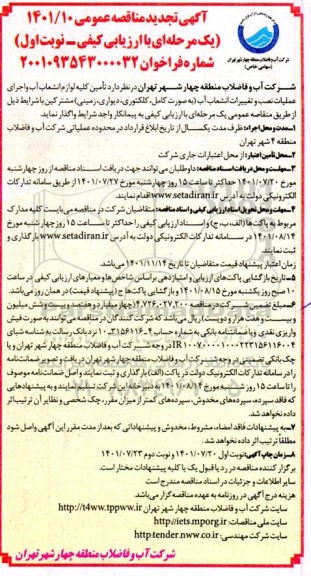 آگهی تجدید مناقصه عمومی ۱۴۰۱/۱۰
(یک مرحله‌ای با ارزیابی کیفی ــ نوبت اول)
شماره فراخوان ۲۰۰۱۰۹۳۵۴۳۰۰۰۰۳۲
شرکت آب و فاضلاب منطقه چهار شهر تهران
(سهامی خاص)
شرکت آب و فاضلاب منطقه چهار شهر تهران در نظر دارد تأمین کلیه لوازم انشعاب آب و اجرای
عملیات نصب و تغییرات انشعاب آب (به صورت کامل، کلکتوری، دیواری، زمینی) مشترکین با شرایط ذیل
از طریق مناقصه عمومی یک مرحله‌ای با ارزیابی کیفی به پیمانکار واجد شرایط واگذار نماید.
۱ــ مدت و محل اجراء: ظرف مدت یکسال از تاریخ ابلاغ قرارداد در محدوده عملیاتی شرکت آب و فاضلاب
منطقه ۴ شهر تهران
۲ــ محل تأمین اعتبار: از محل اعتبارات جاری شرکت
۳ــ مهلت و محل دریافت اسناد مناقصه: داوطلبان می‌توانند جهت دریافت اسناد مناقصه از روز چهارشنبه
مورخ ۱۴۰۱/۰۷/۲۰ حداکثر تا ساعت ۱۵ روز چهارشنبه مورخ ۱۴۰۱/۰۷/۲۷ از طریق سامانه تدارکات
الکترونیکی دولت به آدرس www.setadiran.ir اقدام نمایند.
۴ــ مهلت و محل تحویل اسناد ارزیابی کیفی و اسناد مناقصه: متقاضیان شرکت در مناقصه می‌بایست کلیه مدارک
مربوط به پاکت‌ها (الف، ب، ج) و اسناد ارزیابی کیفی را حداکثر تا ساعت ۱۵ روز شنبه مورخ
۱۴۰۱/۰۸/۱۴ در سامانه تدارکات الکترونیکی دولت به آدرس www.setadiran.ir بارگذاری و
ثبت نمایند.
زمان اعتبار پیشنهاد قیمت متقاضیان تا تاریخ ۱۴۰۱/۱۱/۱۴ می‌باشد.
۵ــ تاریخ بازگشایی پاکت‌های ارزیابی و امتیازدهی براساس شاخص‌ها و معیارهای ارزیابی کیفی در ساعت
۱۰ صبح روز یکشنبه مورخ ۱۴۰۱/۰۸/۱۵ و بازگشایی پاکت‌ها ج (پیشنهاد قیمت) در همان روز می‌باشد.
۶ــ مبلغ تضمین شرکت در مناقصه (چهار میلیارد و هفتصد و بیست و شش میلیون
و بیست و هفت هزار و دویست) ریال می‌باشد که شرکت کنندگان در مناقصه می‌توانند به صورت فیش
واریزی نقدی و یا ضمانتنامه بانکی به شماره حساب نزد بانک رسالت به شناسه شبای
در وجه شرکت آب و فاضلاب منطقه چهار شهر تهران و یا
چک بانکی تضمینی در وجه شرکت آب و فاضلاب منطقه چهار شهر تهران دریافت و تصویر ضمانت‌نامه
را در سامانه تدارکات الکترونیک دولت در پاکت (الف) بارگذاری و ثبت نمایند و اصل ضمانت‌نامه موصوف
را تا ساعت ۱۵ روز شنبه مورخ ۱۴۰۱/۰۸/۱۴ به دبیرخانه این شرکت تسلیم نمایند و به پیشنهادهایی
که فاقد سپرده، سپرده‌های مخدوش، سپرده‌های کمتر از میزان مقرر، چک شخصی و نظایر آن ترتیب اثر
داده نخواهد شد.
۷ــ به پیشنهادات فاقد امضاء، مشروط، مخدوش و پیشنهاداتی که بعد از مدت مقرر این آگهی واصل شود
مطلقاً ترتیب اثر داده نخواهد شد.
۸ــ زمان چاپ آگهی: نوبت اول ۱۴۰۱/۰۷/۲۰ و نوبت دوم ۱۴۰۱/۰۷/۲۳
برگزار کننده مناقصه در رد یا قبول یک یا کلیه پیشنهادات مختار است.
سایر اطلاعات و جزئیات در اسناد مناقصه مندرج است
هزینه درج آگهی در روزنامه به عهده مناقصه‌گزار می‌باشد.
سایت شرکت آب و فاضلاب منطقه چهار شهر تهران http://t4ww.tppww.ir
سایت ملی مناقصات: http://iets.mporg.ir
سایت شرکت مهندسی: http:tender.nww.co.ir
شرکت آب و فاضلاب منطقه چهار شهر تهران